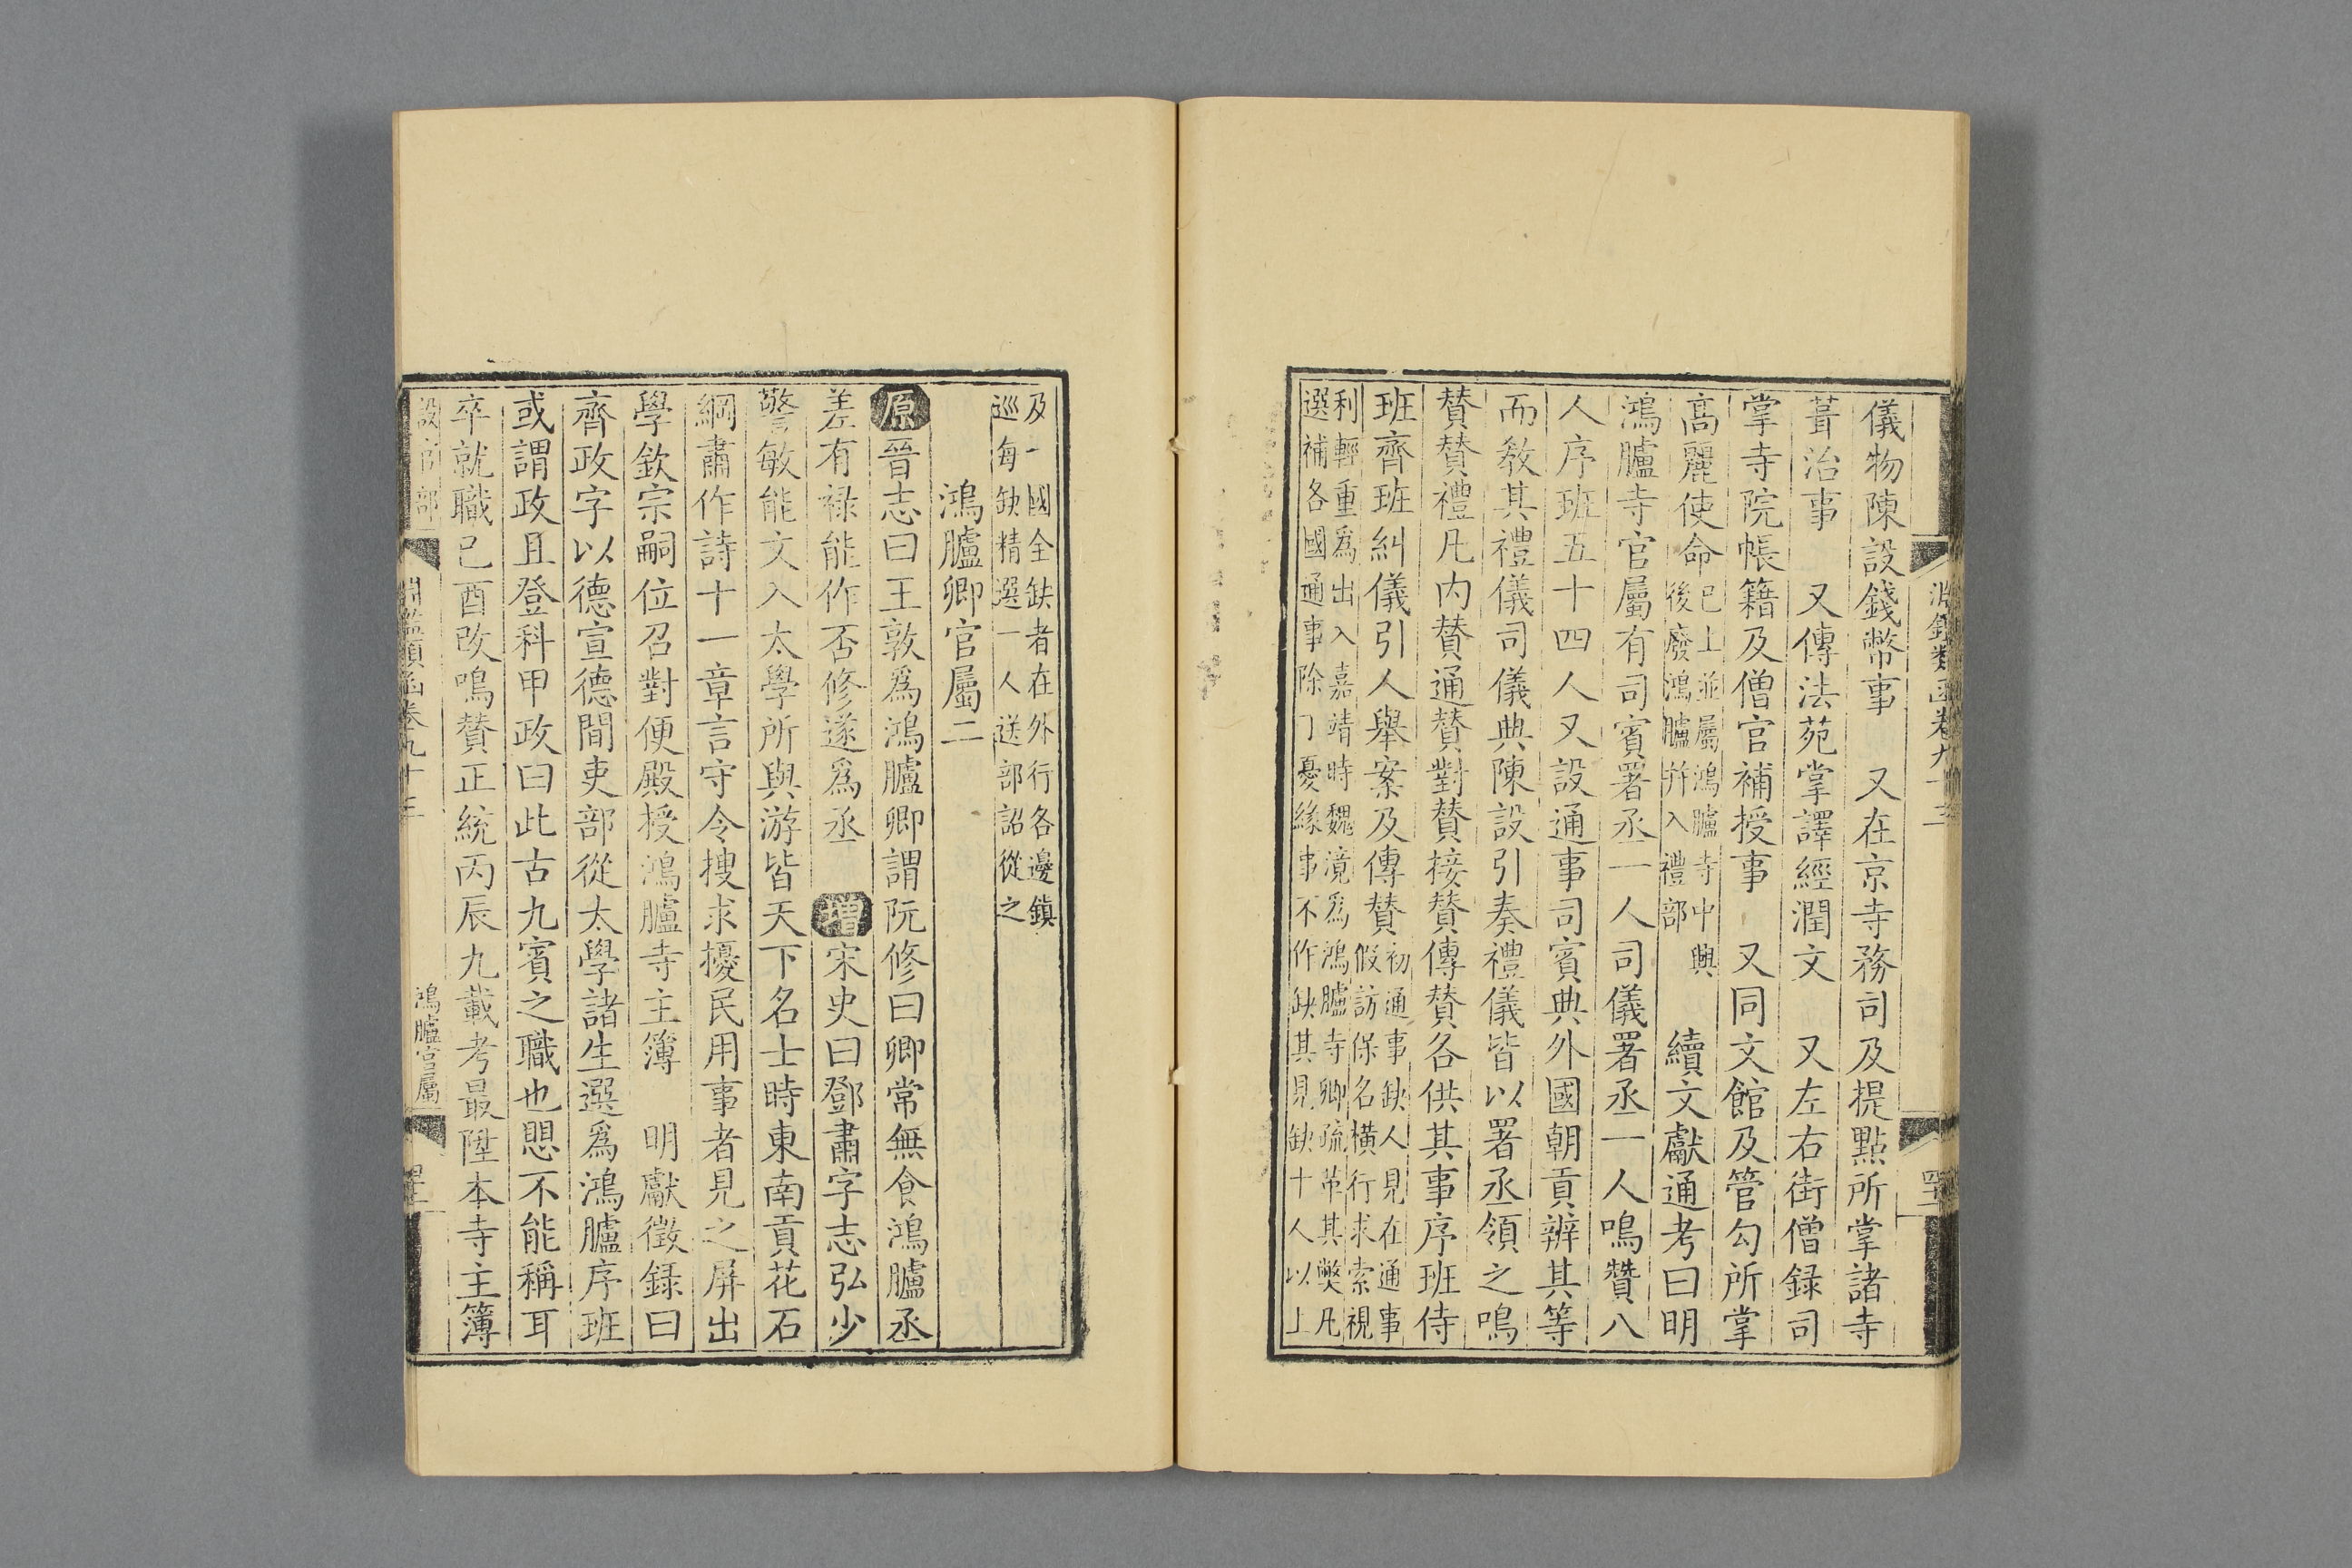 儀物陳設錢幣事　又在京寺務司及提點所掌諸寺
葺治事　又傳法苑掌譯經潤文　又左右街僧録司
掌寺院帳籍及僧官補授事　又同文館及管勾所掌
高麗使命
已上並屬鴻臚寺中興
後廢鴻臚并入禮部
續文獻通考曰明
鴻臚寺官屬有司賓署丞一人司儀署丞一人鳴贊八
人序班五十四人又設通事司賓典外國朝貢辨其等
而教其禮儀司儀典陳設引奏禮儀皆以署丞領之鳴
贊贊禮凡内贊通贊對贊接贊傳贊各供其事序班侍
班齊班糾儀引人舉案及傳贊
初通事缺人見在通事
假訪保名橫行求索視
利輕重爲出入嘉靖時魏㵾爲鴻臚寺卿疏革其弊凡
選補各國通事除丁憂緣事不作缺其見缺十人以上
及一國全缺者在外行各邊鎮
巡每缺精選一人送部詔從之
鴻臚卿官屬二
原晉志曰王敦爲鴻臚卿謂阮修曰卿常無食鴻臚丞
差有禄能作否修遂爲丞　增宋史曰鄧肅字志弘少
警敏能文入太學所與游皆天下名士時東南貢花石
綱肅作詩十一章言守令搜求擾民用事者見之屏出
學欽宗嗣位召對便殿授鴻臚寺主簿　明獻徵録曰
齊政字以德宣德間吏部從太學諸生選爲鴻臚序班
或謂政且登科甲政曰此古九賓之職也愳不能稱耳
卒就職已酉改鳴贊正統丙辰九載考最陞本寺主簿
設官部
淵鑑類函卷九十三
鴻臚官屬